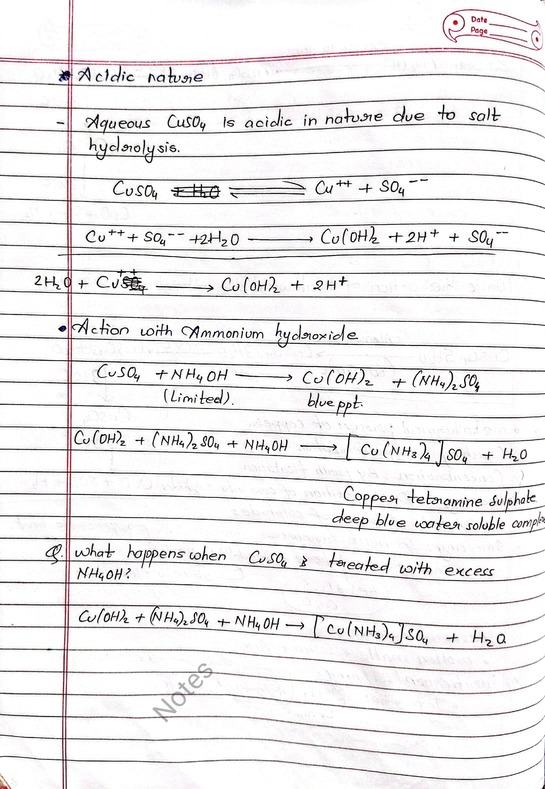 Date
Page
* Acidic nature
- Aqueous CuSO4 is acidic in nature due to salt
hydrolysis.
CuSO4 ⇌ Cu++ + SO4--
Cu++ + SO4-- + 2H2O → Cu(OH)2 + 2H+ + SO4--
2H2O + Cu++ → Cu(OH)2 + 2H+
• Action with Ammonium hydroxide
CuSO4 + NH4OH → Cu(OH)2 + (NH4)2SO4
(Limited). blue ppt.
Cu(OH)2 + (NH4)2SO4 + NH4OH → [Cu(NH3)4]SO4 + H2O
Copper tetramine Sulphate
deep blue water soluble complex
Q. What happens when CuSO4 is treated with excess
NH4OH?
Cu(OH)2 + (NH4)2SO4 + NH4OH → [Cu(NH3)4]SO4 + H2O
Notes